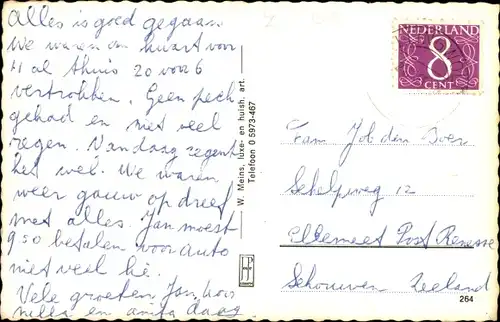 alles is goed gegaan.
We waren om kwart voor
11 al thuis 20 voor 6
vertrokken. Geen pech
gehad en niet veel
regen. Vandaag regent
het wel. We waren
weer gauw op dreef
met alles. Jan moest
9.50 betalen voor auto
niet veel hé.
Vele groeten Jan,
en anita
W. Meins, luxe- en huish. art.
Telefoon 0 5973-467
NEDERLAND
8
CENT
Fam Job den Boer
Schelpweg 12
Ellemeet Post Renesse
Schouwen Zeeland
264